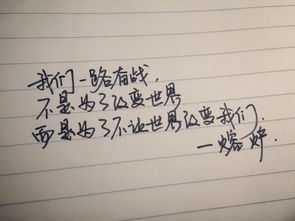 我们一路奋战，
不是为了改变世界
而是为了不让世界改变我们.
一熔炉.